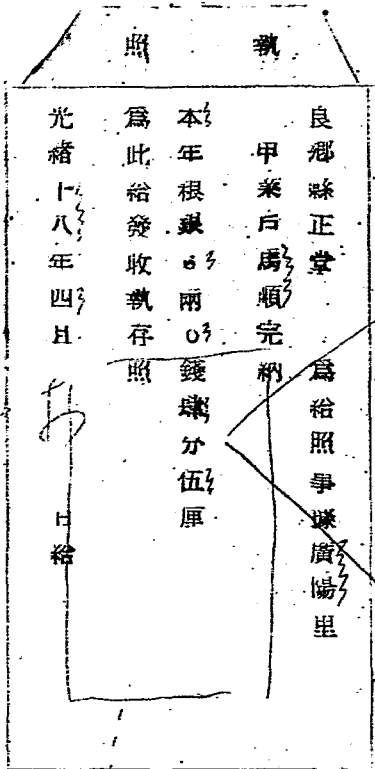 執照
良鄉縣正堂 為給照事據廣陽里
甲業戶馬順完納
本年根銀0兩0錢肆分伍厘
為此給發收執存照
光緒十八年四月 日給